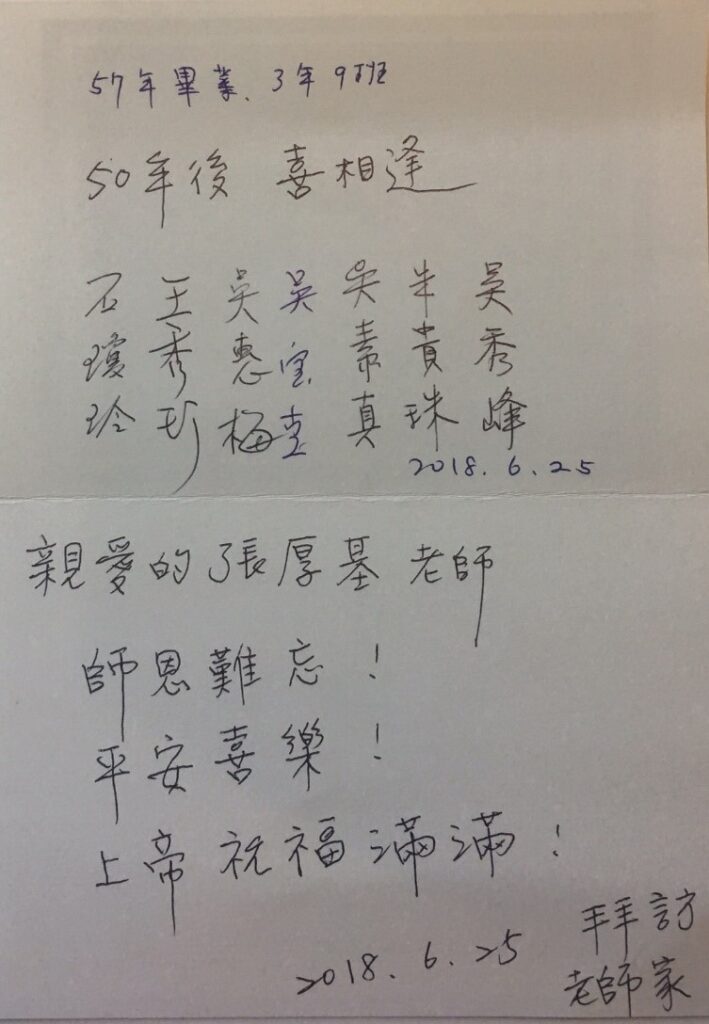 57年畢業、3年9班
50年後 喜相逢
石瓊玲
王秀珍
吳惠梅
吳宝
吳素真
朱貴珠
吳秀峰
2018.6.25
親愛的張厚基老師
師恩難忘！
平安喜樂！
上帝祝福滿滿！
2018.6.25
拜訪
老師家